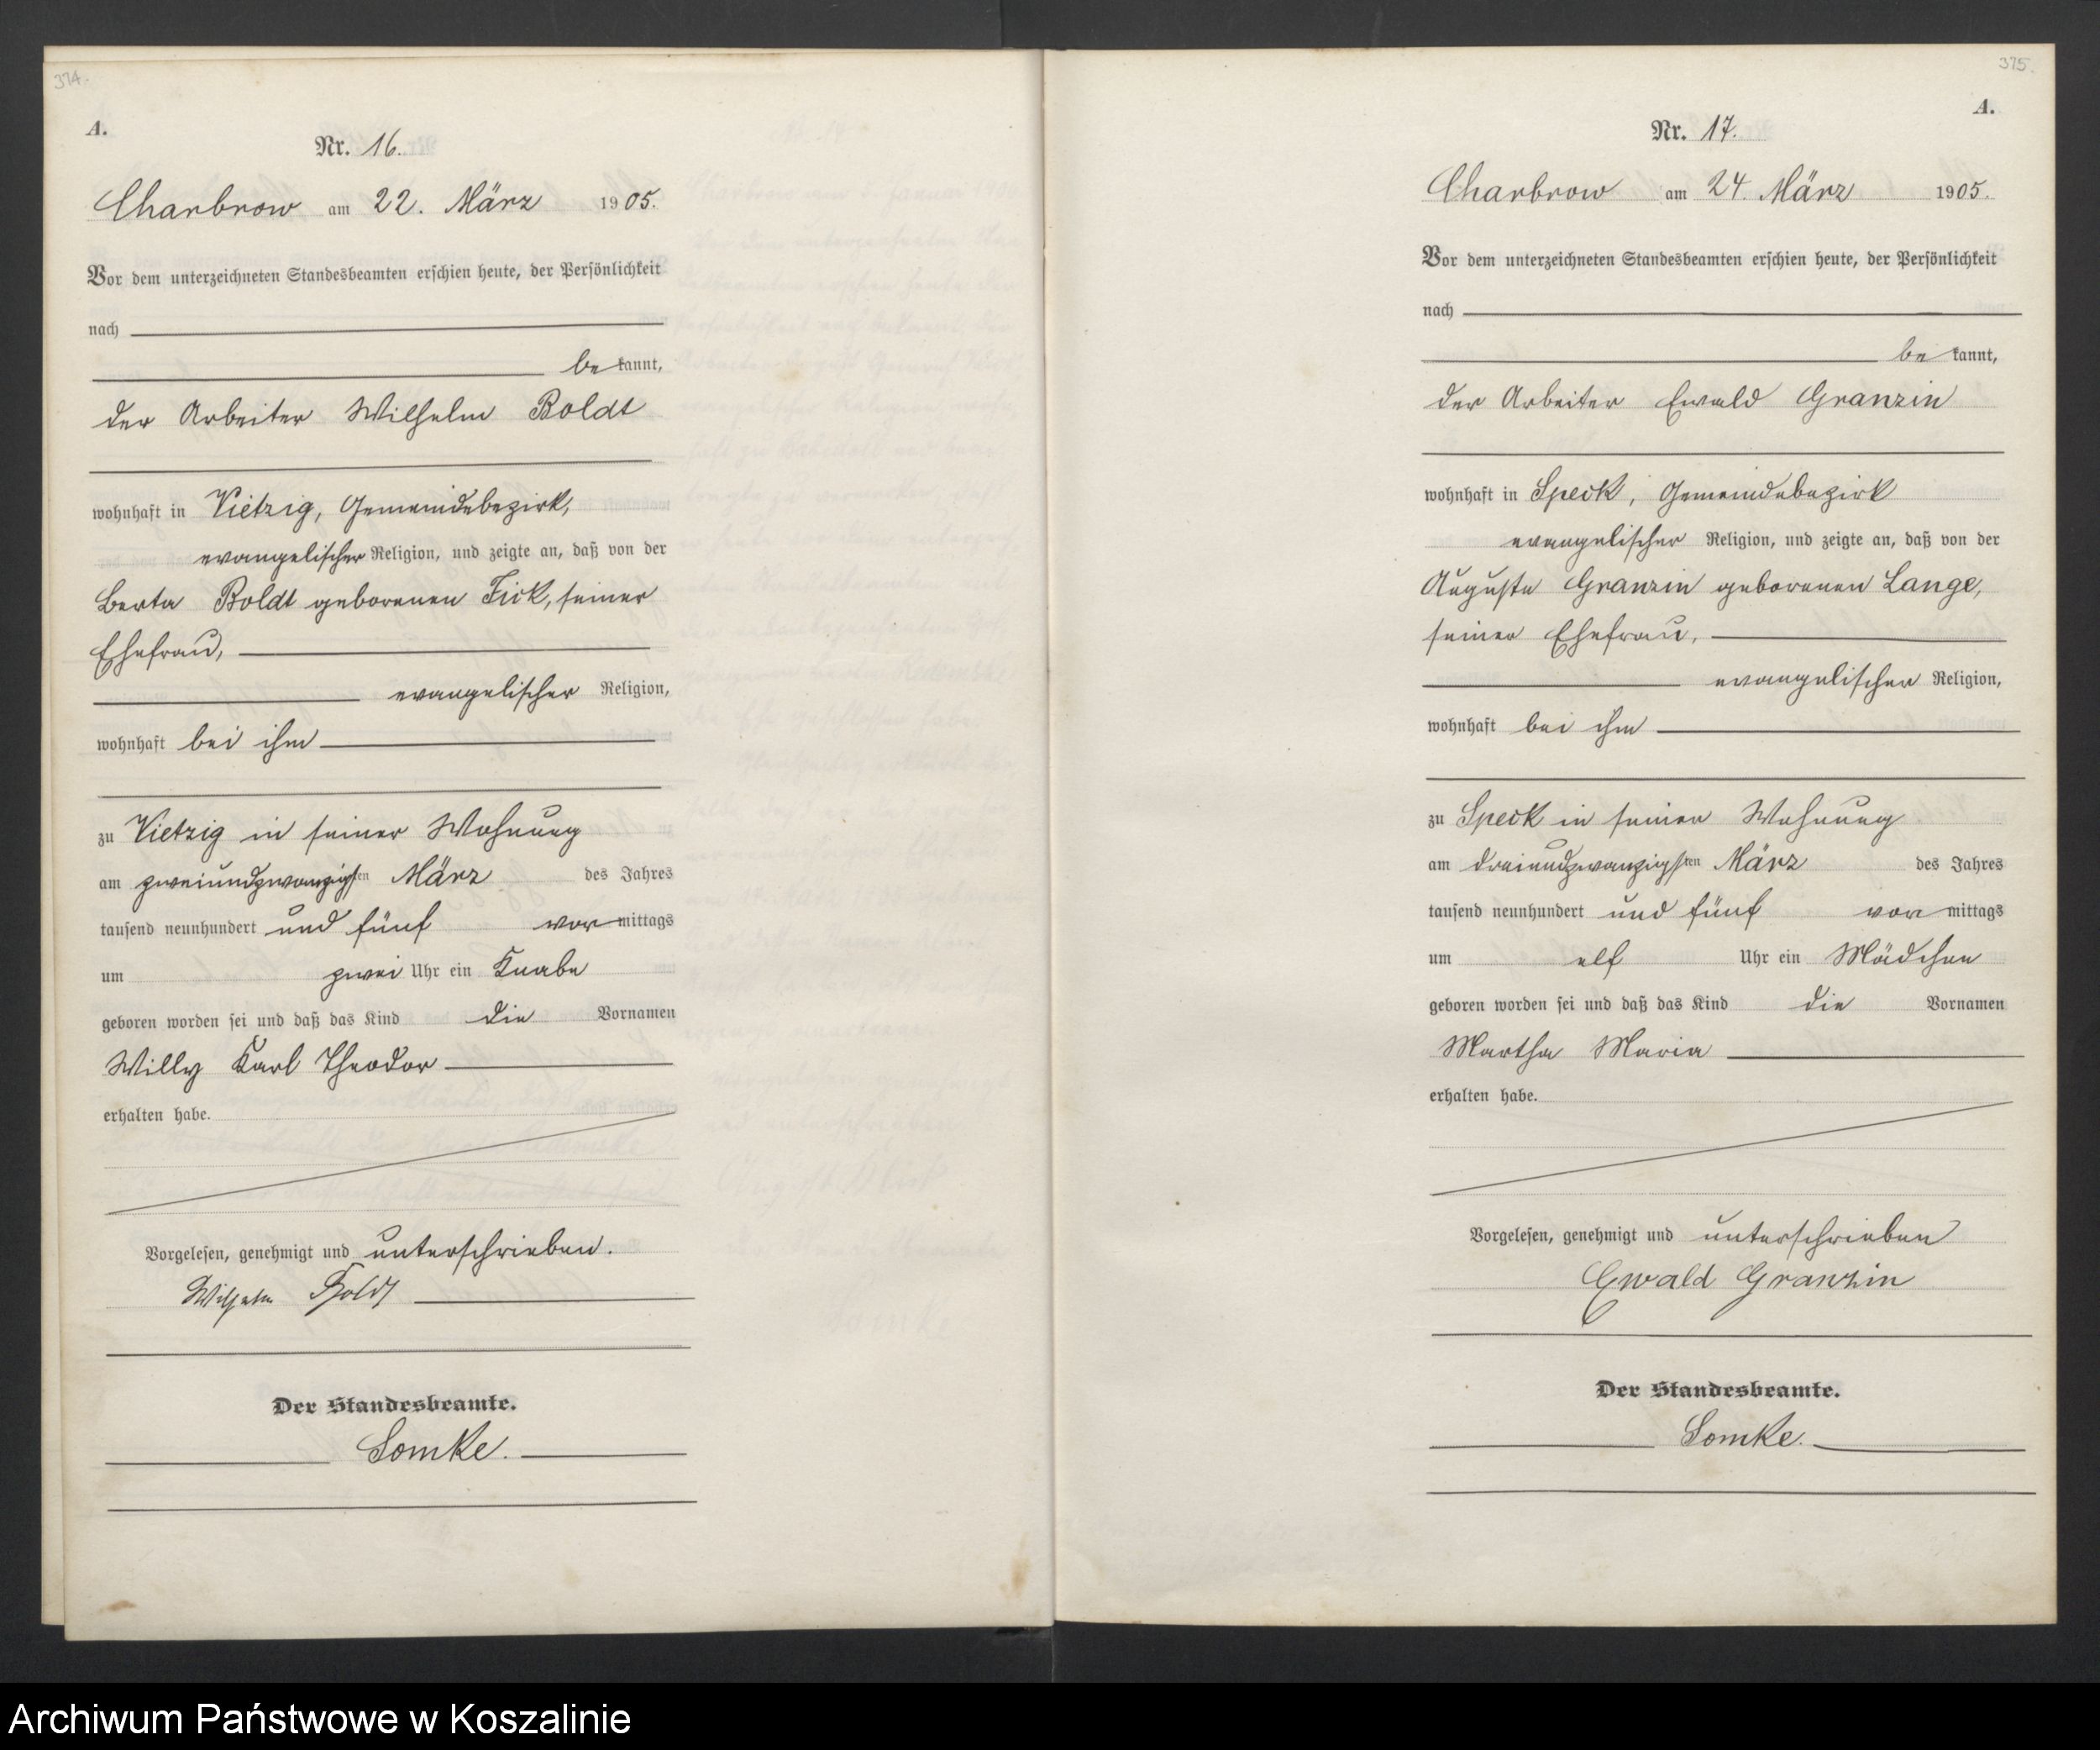 374.
A.
Nr. 16.
Charbrow am 22. März 1905.
Vor dem unterzeichneten Standesbeamten erschien heute, der Persönlichkeit
nach
be kannt,
der Arbeiter Wilhelm Boldt
wohnhaft in Vietzig, Gemeindebezirk,
evangelischer Religion, und zeigte an, daß von der
Berta Boldt geborenen Fick, seiner
Ehefrau,
evangelischer Religion,
wohnhaft bei ihm
zu Vietzig in seiner Wohnung
am zweiundzwanzigsten März des Jahres
tausend neunhundert und fünf vor mittags
um zwei Uhr ein Knabe
geboren worden sei und daß das Kind die Vornamen
Willy Karl Theodor
erhalten habe.
Vorgelesen, genehmigt und unterschrieben.
Wilhelm Boldt
Der Standesbeamte.
Somke.
375.
A.
Nr. 17.
Charbrow am 24. März 1905.
Vor dem unterzeichneten Standesbeamten erschien heute, der Persönlichkeit
nach
be kannt,
der Arbeiter Ewald Granzin
wohnhaft in Speck, Gemeindebezirk
evangelischer Religion, und zeigte an, daß von der
Auguste Granzin geborenen Lange,
seiner Ehefrau,
evangelischer Religion,
wohnhaft bei ihm
zu Speck in seiner Wohnung
am dreiundzwanzigsten März des Jahres
tausend neunhundert und fünf vor mittags
um elf Uhr ein Mädchen
geboren worden sei und daß das Kind die Vornamen
Martha Maria
erhalten habe.
Vorgelesen, genehmigt und unterschrieben
Ewald Granzin
Der Standesbeamte.
Somke.
Archiwum Państwowe w Koszalinie